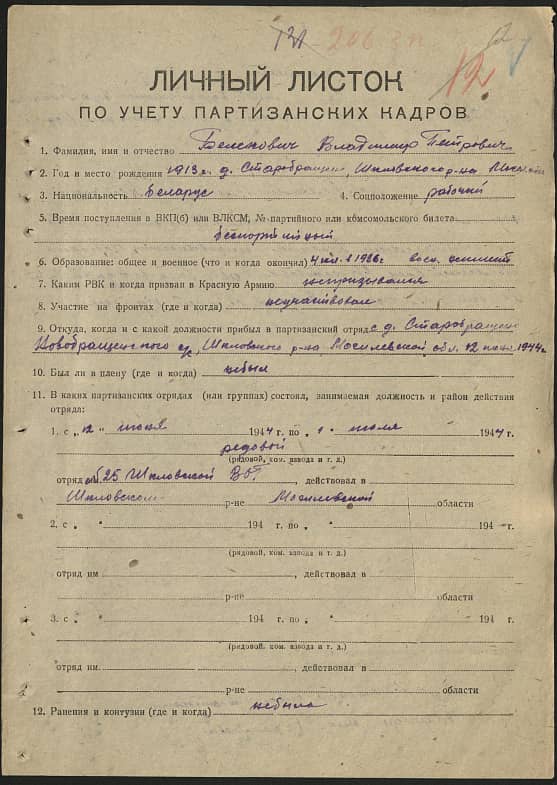 121 206 зп 12
12
ЛИЧНЫЙ ЛИСТОК
ПО УЧЕТУ ПАРТИЗАНСКИХ КАДРОВ
1. Фамилия, имя и отчество Владимир Петрович
2. Год и место рождения 1913 г. д. Старобращино, Шкловского р-на
3. Национальность беларус 4. Соцположение рабочий
5. Время поступления в ВКП(б) или ВЛКСМ, № партийного или комсомольского билета
беспартийный
6. Образование: общее и военное (что и когда окончил) 4 кл. в 1926 г
7. Каким РВК и когда призван в Красную Армию непризывался
8. Участие на фронтах (где и когда) неучаствовал
9. Откуда, когда и с какой должности прибыл в партизанский отряд с д. Старобращино
Новобращенского с/с, Шкловского р-на Могилевской обл. 12 июня 1944 г.
10. Был ли в плену (где и когда) небыл
11. В каких партизанских отрядах (или группах) состоял, занимаемая должность и район действия
отряда:
1. с „12" июня 1944 г. по „1" июля 1944 г.
редовой
(рядовой, ком. взвода и т. д.)
отряд 25 Шкловской , действовал в
Шкловском р-не Могилевской области
2. с „ " 194 г. по „ " 194 г.
(рядовой, ком. взвода и т. д.)
отряд им , действовал в
р-не области
3. с „ " 194 г. по „ " 194 г.
(рядовой, ком. взвода и т. д.)
отряд им. , действовал в
р-не области
12. Ранения и контузии (где и когда) небыло